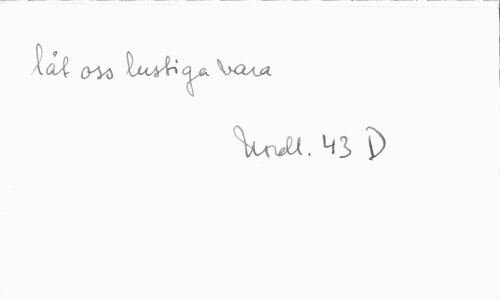 låt oss lustiga vara
Nordl. 43 D